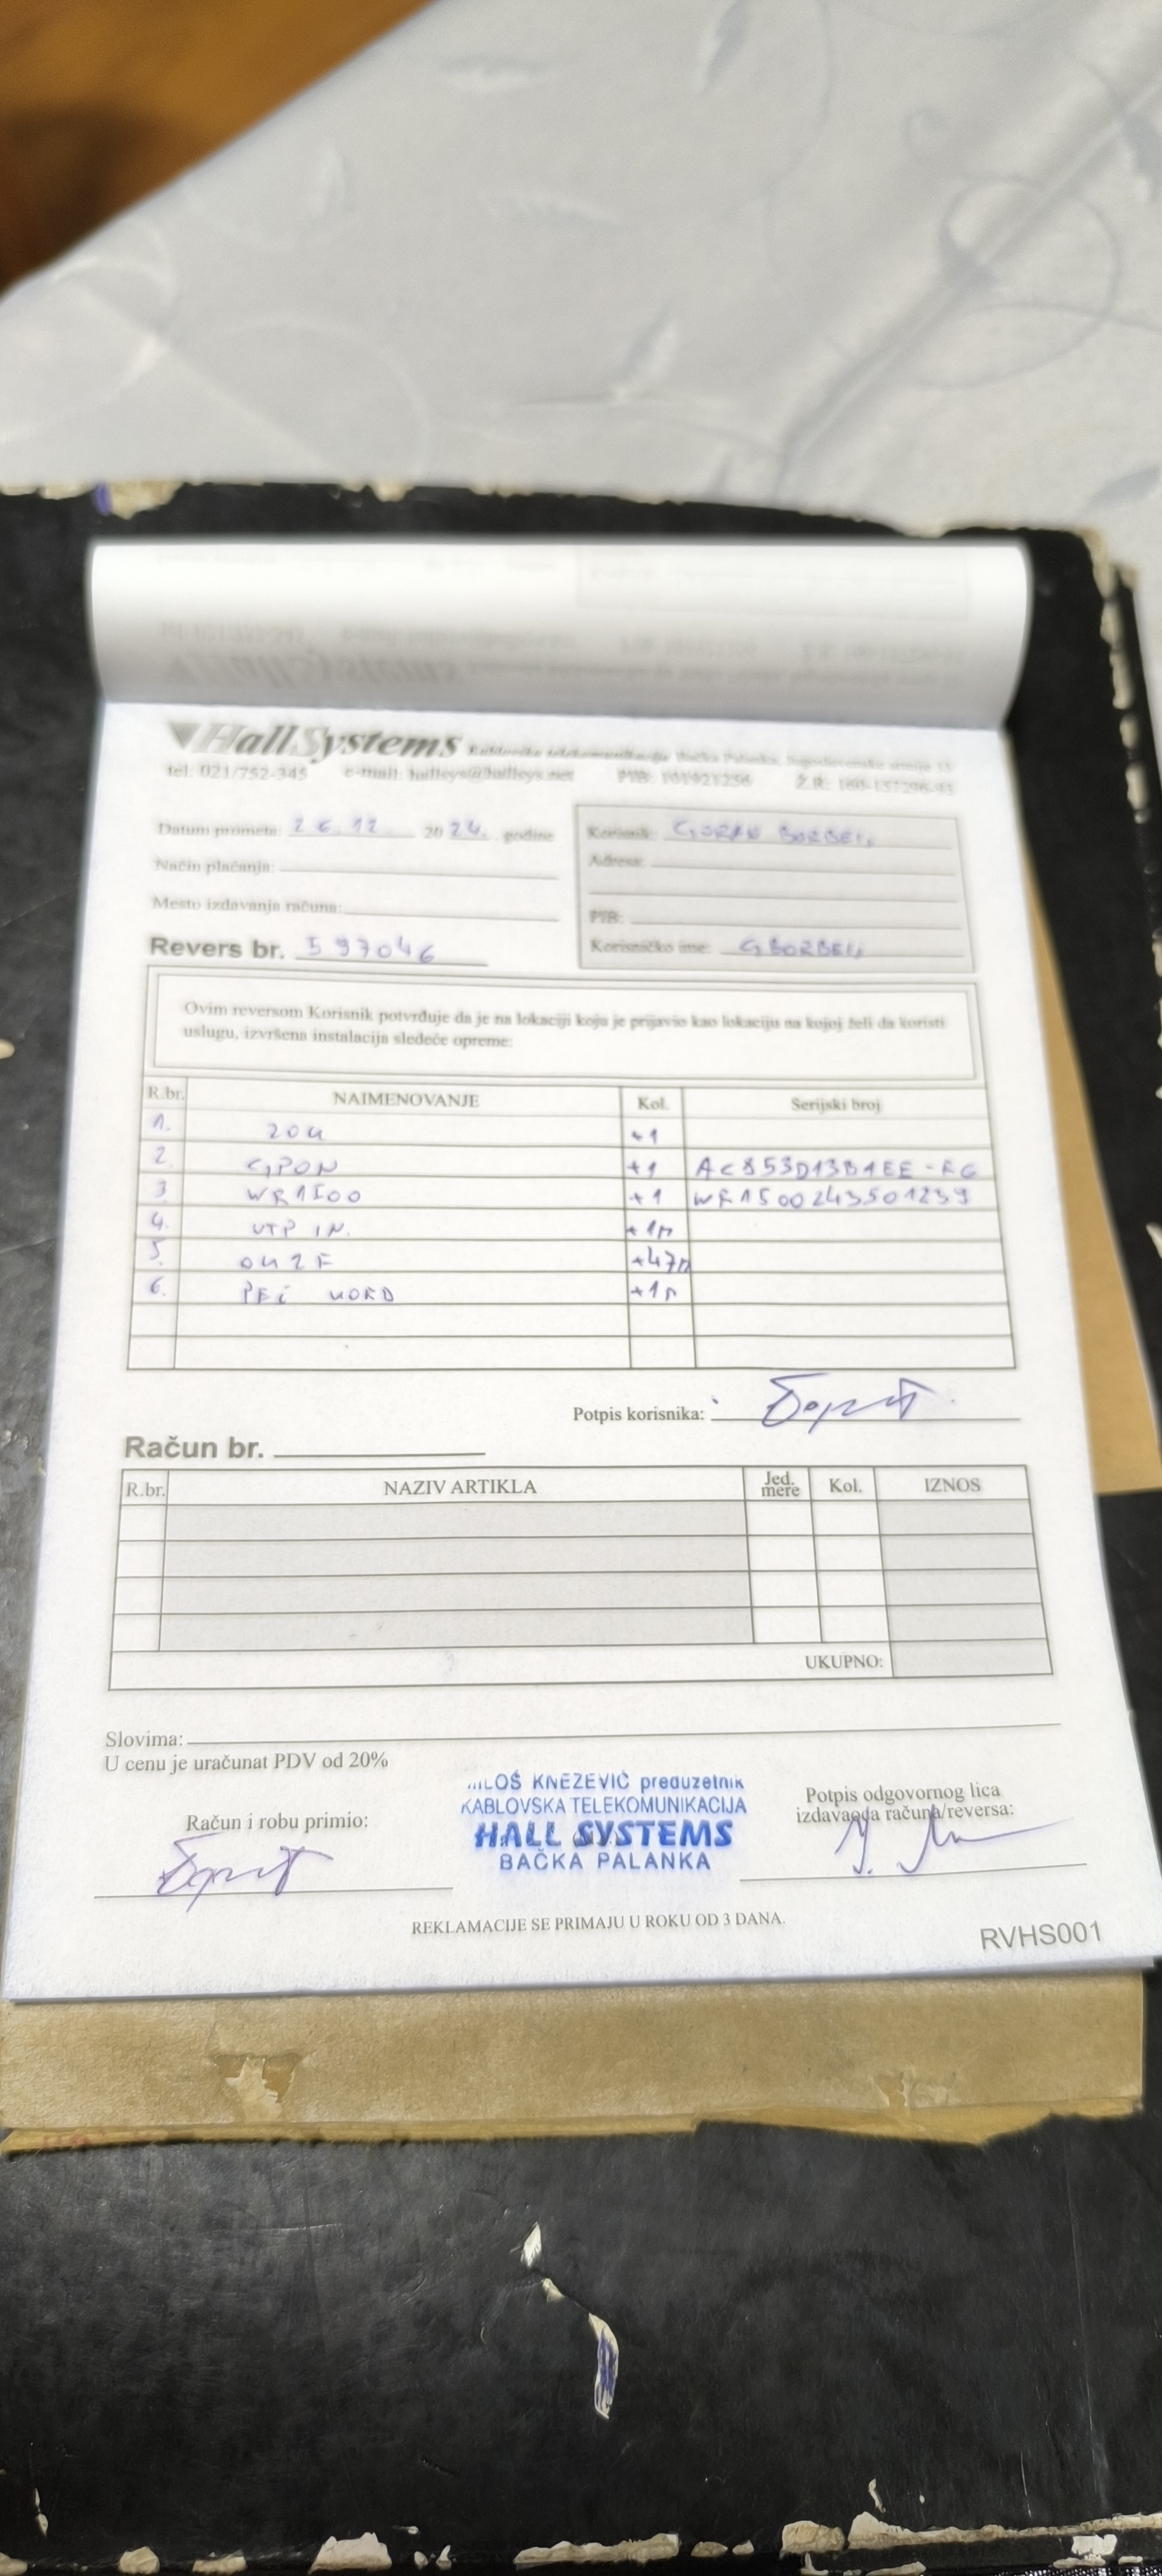 HallSystems Kablovske telekomunikacije Bačka Palanka,
tel: 021/752-345 e-mail: hallsys@hallsys.net PIB: 101921256 Ž.R: 160-157296-93
Datum prometa: 26.12 2024. godine
Korisnik: GORAN BORBELJ
Način plaćanja:
Adresa:
Mesto izdavanja računa:
PIB:
Revers br. 597046
Korisničko ime: GBORBELJ
Ovim reversom Korisnik potvrđuje da je na lokaciji koju je prijavio kao lokaciju na kojoj želi da koristi
uslugu, izvršena instalacija sledeće opreme:
R.br. NAIMENOVANJE Kol. Serijski broj
1. ZOU +1
2. GPON +1 AC853D13B1EE-EG
3 WR1500 +1 WR1500243501239
4. UTP IN. +1m
5. OU2F +47m
6. PEĆ UORD +1m
Potpis korisnika:
Račun br.
R.br. NAZIV ARTIKLA Jed. mere Kol. IZNOS
UKUPNO:
Slovima:
U cenu je uračunat PDV od 20%
Račun i robu primio:
MILOŠ KNEZEVIĆ preduzetnik
KABLOVSKA TELEKOMUNIKACIJA
HALL SYSTEMS
BAČKA PALANKA
Potpis odgovornog lica
izdavaoda računa/reversa:
REKLAMACIJE SE PRIMAJU U ROKU OD 3 DANA.
RVHS001